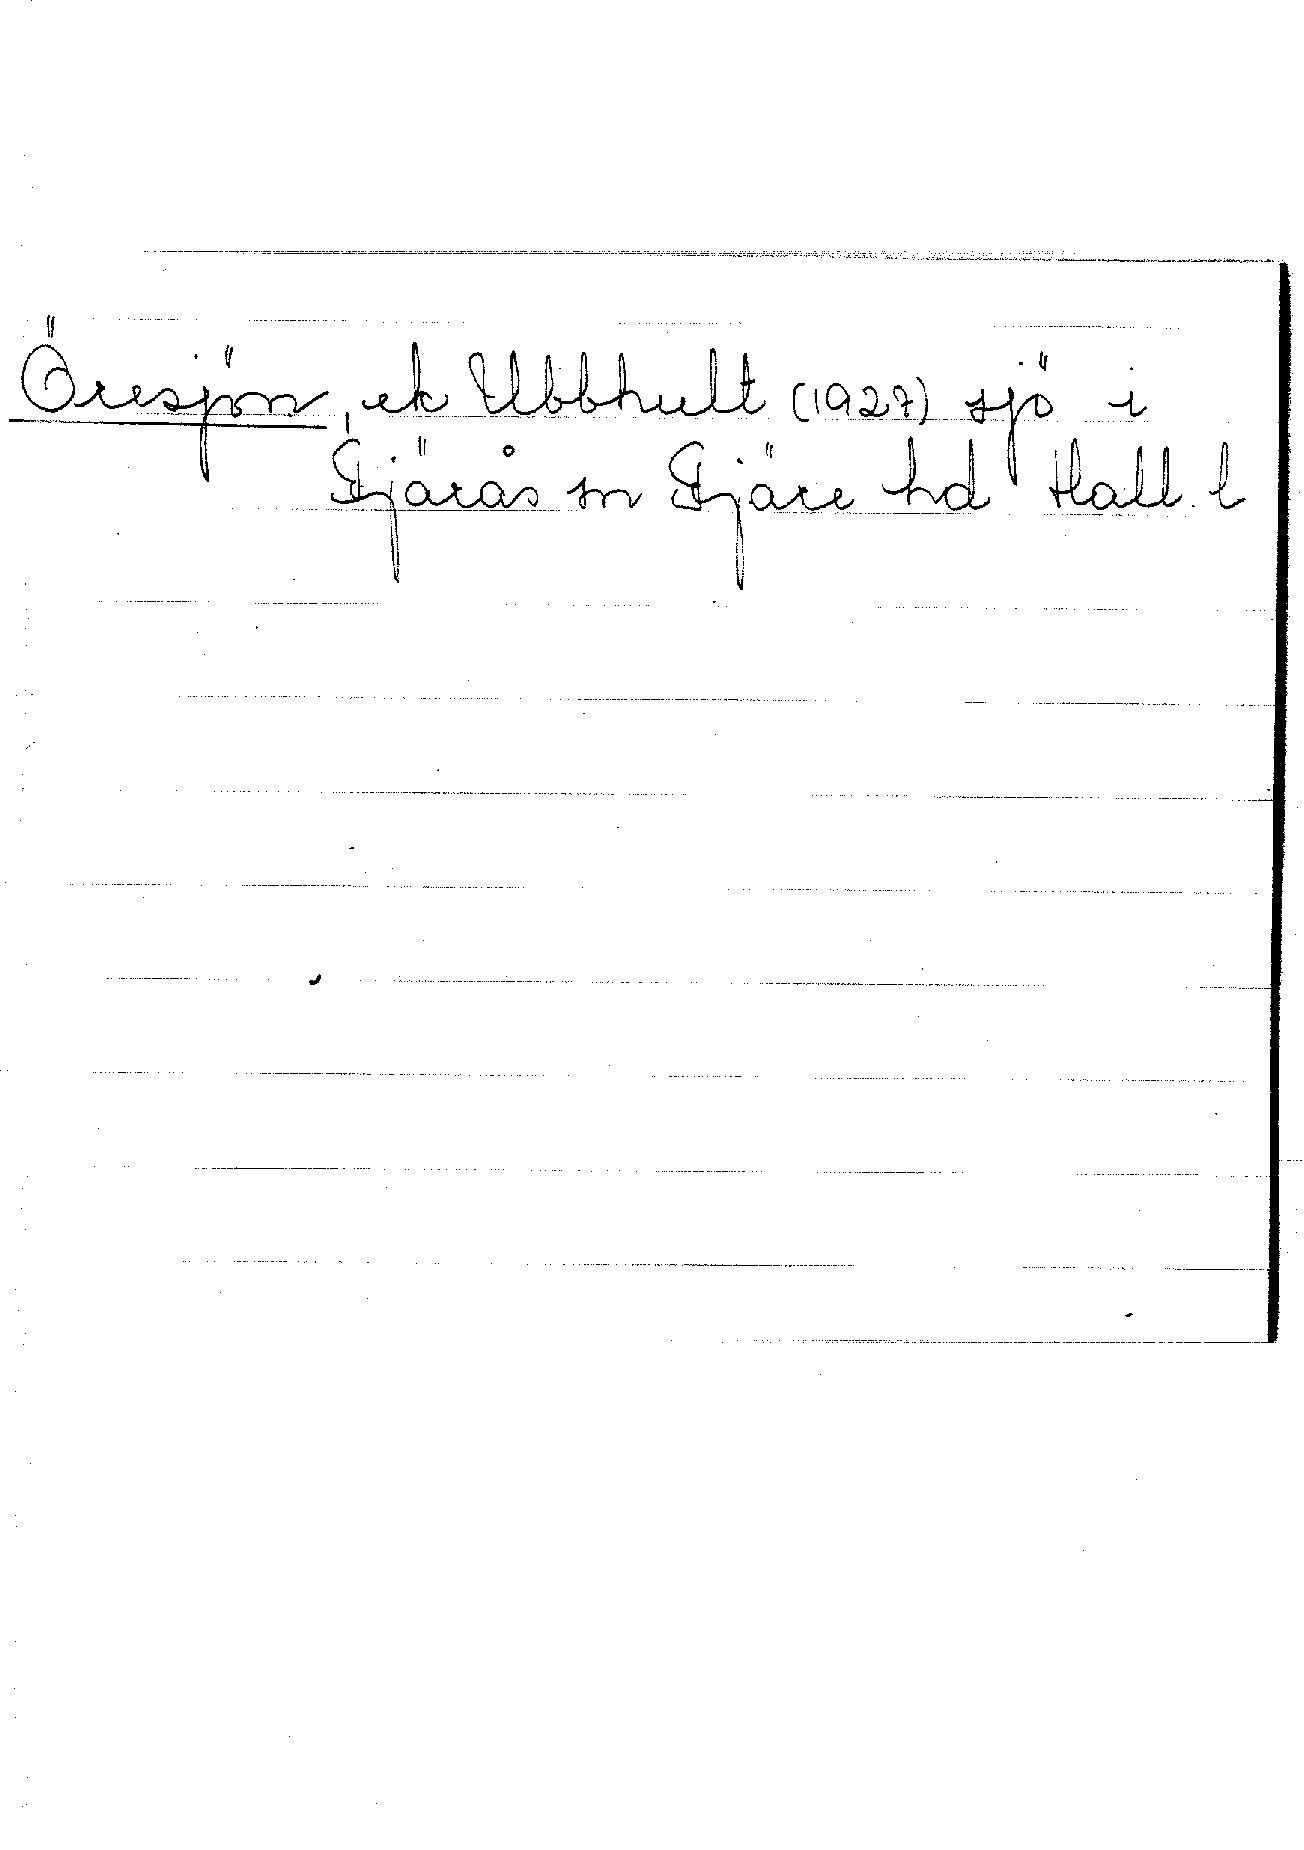 Öresjön, ek Ubbhult (1927) sjö i
Fjärås sn Fjäre hd Hall. l